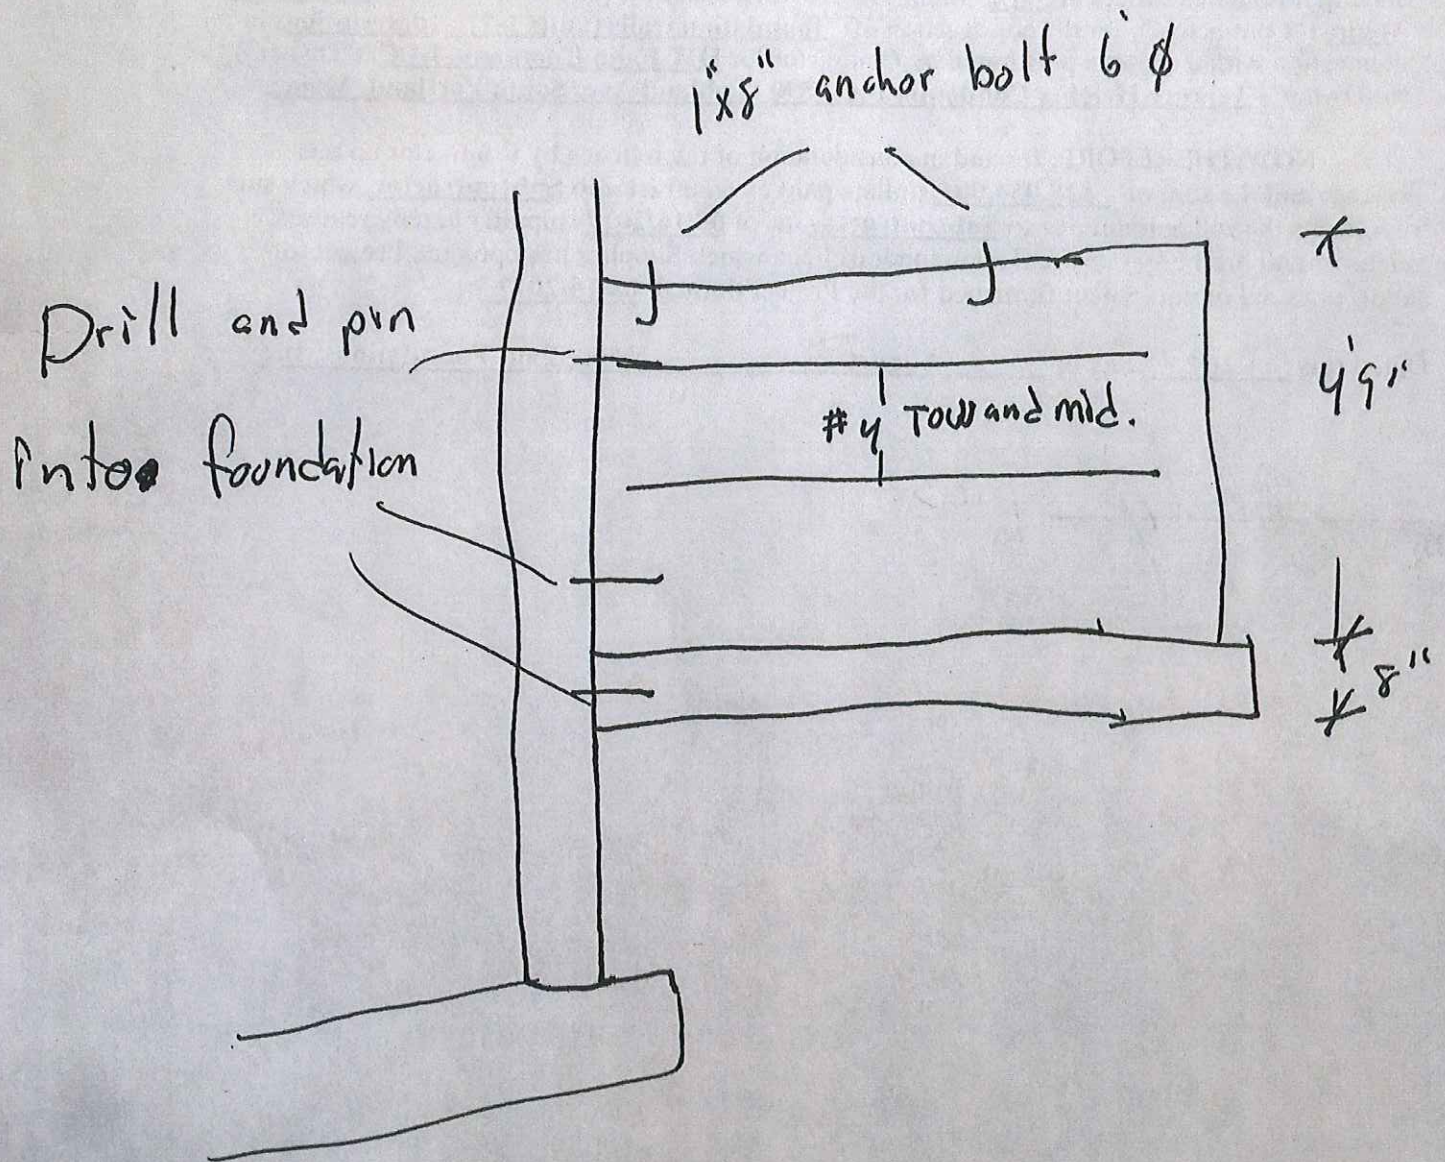 1"x8" anchor bolt 6'
Drill and pin
into foundation
#4 Tow and mid.
4'9"
8"